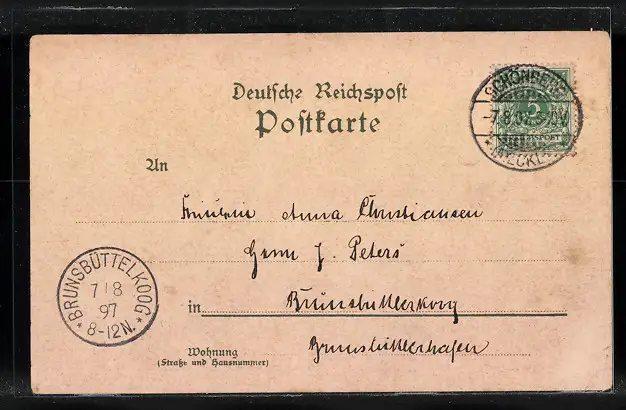 Deutsche Reichspost
Postkarte
SCHÖNBERG
7.8.97 6-7 V.
(MECKL.)
5
REICHSPOST
An
Fräulein Anna Christiansen
Herrn J. Peters
in Brunsbüttlerkoog
Brunsbüttlerhafen
BRUNSBÜTTELKOOG
7 | 8
97
8-12N.
Wohnung
(Straße und Hausnummer)